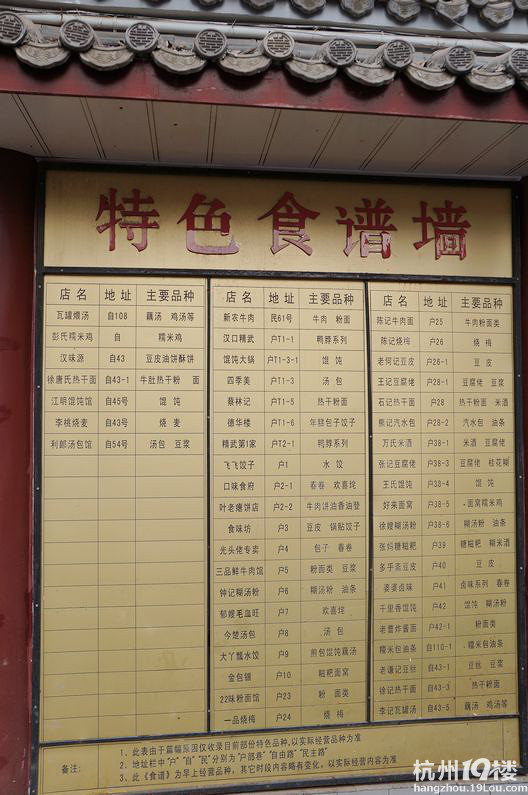 特色食谱墙
店名 地址 主要品种
瓦罐煨汤 自108 藕汤 鸡汤等
彭氏糯米鸡 自 糯米鸡
汉味源 自43 豆皮油饼酥饼
徐唐氏热干面 自43-1 牛肚热干粉 面
江明馄饨馆 自45号 馄饨
李桃烧麦 自43号 烧麦
利郎汤包馆 自54号 汤包 豆浆
店名 地址 主要品种
新农牛肉 民61号 牛肉 粉面
汉口精武 户T1-1 鸭脖系列
馄饨大锅 户T1-3-1 馄饨
四季美 户T1-3 汤包
蔡林记 户T1-5 热干粉面
德华楼 户T1-6 年糕包子饺子
精武第1家 户T2-1 鸭脖系列
飞飞饺子 户1 水饺
口味食府 户2-1 春卷 欢喜坨
叶老瘪饼店 户2-2 牛肉饼油香油登
食味坊 户3 豆皮 锅贴饺子
光头佬专卖 户4 包子 春卷
三品鲜牛肉馆 户5 粉面类 豆浆
钟记糊汤粉 户6 糊汤粉 油条
郁嫂毛血旺 户7 欢喜坨
今楚汤包 户8 汤包
大丫瓢水饺 户9 煎包馄饨藕汤
金包银 户10 糍粑面窝
22味粉面馆 户23 粉面类
一品烧梅 户24 烧梅
店名 地址 主要品种
陈记牛肉面 户25 牛肉粉面类
陈记烧梅 户26 烧梅
老何记豆皮 户26-1 豆皮
王记豆腐佬 户28-1 豆腐佬 豆浆
石记热干面 户28 热干粉面 米酒
熊记汽水包 户28-2 汽水包 油条
万氏米酒 户38-1 米酒 豆腐佬
张记豆腐佬 户38-3 豆腐佬 桂花糊
王氏馄饨 户38-4 馄饨
好来面窝 户38-5 面窝糯米鸡
徐嫂糊汤粉 户38-6 糊汤粉 油条
张妈糖糍粑 户39 糖糍粑 米酒
多乎斋豆皮 户40 豆皮
婆婆卤味 户41 卤味系列 春卷
千里香馄饨 户42 馄饨 糊汤粉
老曹炸酱面 户42-1 粉面类
糯米包油条 自110-1 糯米包油条
老谦记豆丝 自43-1 豆丝 豆浆
徐记热干面 自43-3 热干粉面
李记瓦罐汤 自43-5 藕汤 鸡汤等
备注：
1、此表由于篇幅原因仅收录目前部份特色品种,以实际经营品种为准
2、地址栏中"户""自""民"分别为"户部巷""自由路""民主路"
3、此《食谱》为早上经营品种，其它时段内容略有变化，以实际经营内容为准
杭州19楼
hangzhou.19lou.com